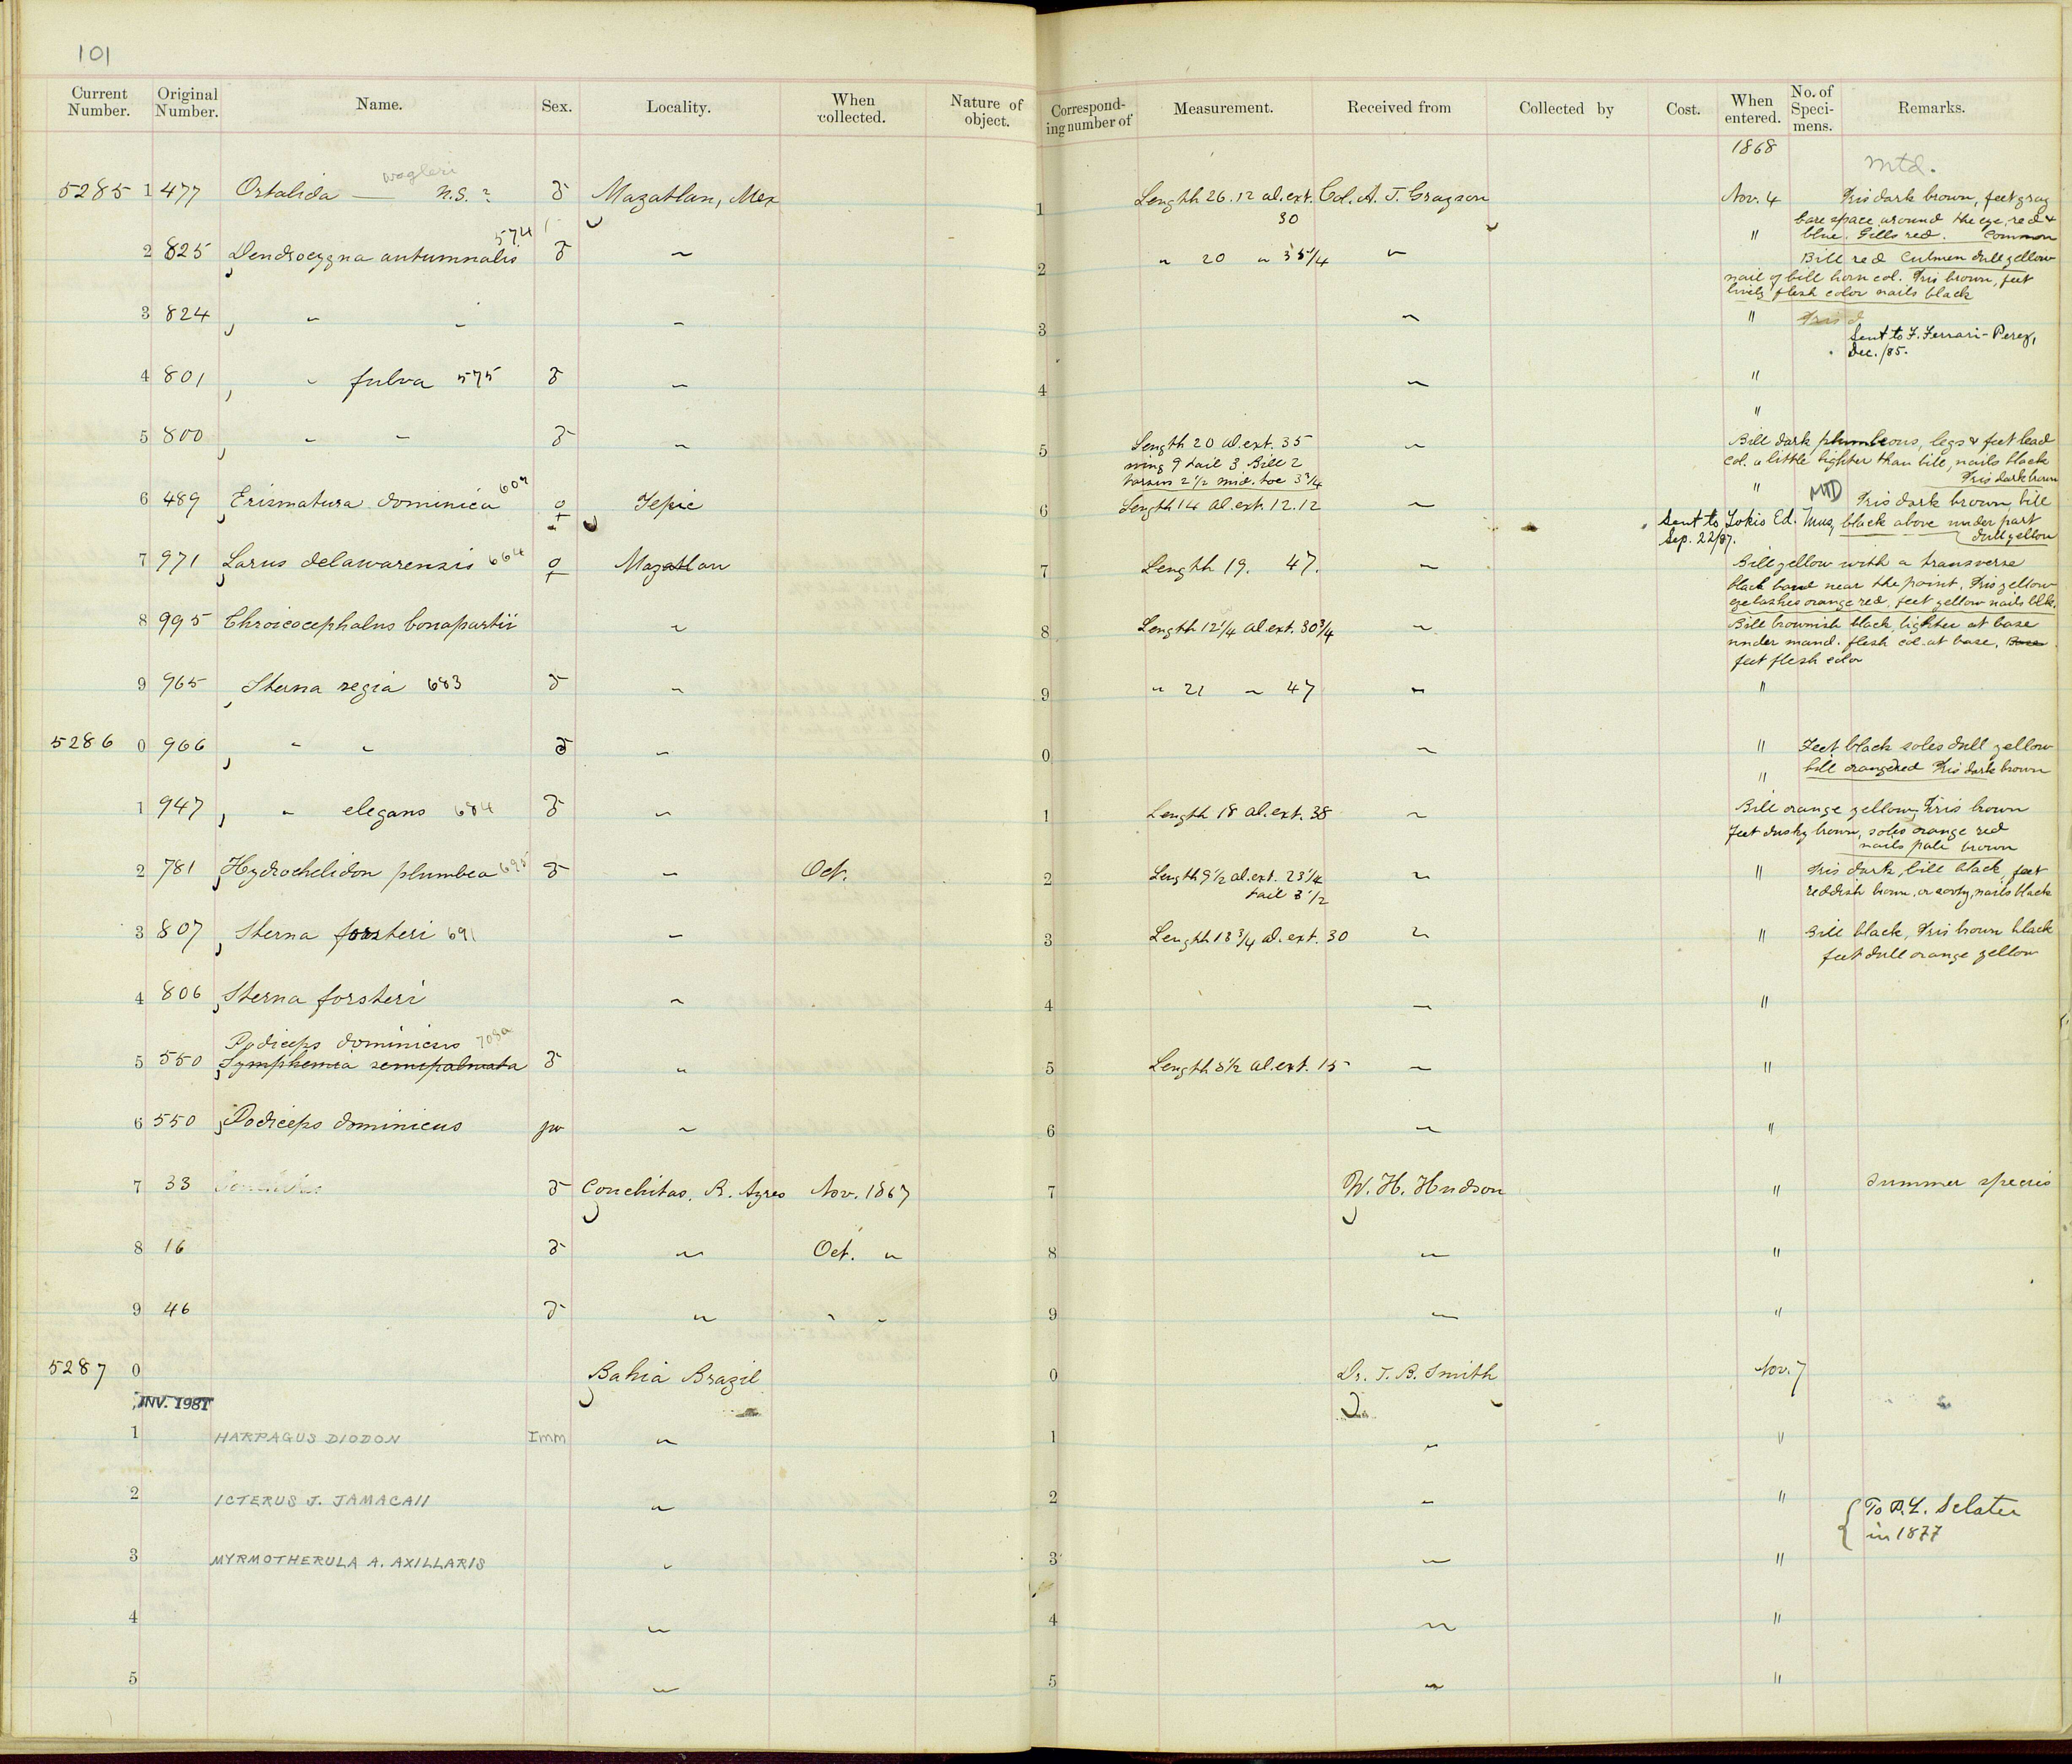 101
Current Number. Original Number. Name. Sex. Locality. When collected. Nature of object. Corresponding number of Measurement. Received from Collected by Cost. When entered. No. of Specimens. Remarks.
1868
wagleri
Mtd.
5285 1 477 Ortalida — n.s.? ♂ Mazatlan, Mex 1 Length 26.12 al.ext. 30 Col. A. J. Grayson Nov. 4 Iris dark brown, feet gray
bare space around the eye, red &
blue. Gills red. Common
574
2 825 Dendrocygna autumnalis ♂ " 2 " 20 " 35 1/4 " " Bill red Culmen dull yellow
nail of bill horn col. Iris brown, feet
lively flesh color nails black
3 824 " " " 3 " " Iris d
Sent to F. Ferrari-Perez,
Dec. /85.
4 801 " fulva 575 ♂ " 4 " "
"
5 800 " " ♂ " 5 Length 20 al.ext. 35 " Bill dark plumbeous, legs & feet lead
wing 9 tail 3 Bill 2 col. a little lighter than bill, nails black
tarsus 2 1/2 mid. toe 3 1/4 Iris dark brown
6 489 Erismatura dominica ♀ Tepic 6 Length 14 al.ext. 12.12 " " MTD Iris dark brown, bill
Sent to Tokio Ed. Mus, black above under part
Sep. 22/87. dull yellow
7 971 Larus delawarensis 664 ♀ Mazatlan 7 Length 19. 47. " Bill yellow with a transverse
black band near the point, Iris yellow
eyelashes orange red, feet yellow nails blk.
8 995 Chroicocephalus bonapartii " 8 Length 12 1/4 al.ext. 30 3/4 " Bill brownish black, lighter at base
under mand. flesh col. at base. Base
feet flesh color
9 965 Sterna regia 683 ♂ " 9 " 21 " 47 " "
5286 0 966 " " ♂ " 0 " " Feet black soles dull yellow
" bill orange red Iris dark brown
1 947 " elegans 684 ♂ " 1 Length 18 al.ext. 38 " Bill orange yellow, Iris brown
feet dusky brown, soles orange red
nails pale brown
2 781 Hydrochelidon plumbea 695 ♂ " Oct. 2 Length 9 1/2 al.ext. 23 1/4 " " Iris dark, bill black, feet
tail 3 1/2 reddish brown, or sooty, nails black
3 807 Sterna forsteri 691 " 3 Length 13 3/4 al.ext. 30 " " Bill black, Iris brown black
feet dull orange yellow
4 806 Sterna forsteri " 4 " "
Podiceps dominicus 708a
5 550 Symphemia semipalmata ♂ " 5 Length 8 1/2 al.ext. 15 " "
6 550 Podiceps dominicus juv " 6 " "
7 33 ♂ Conchitas, B. Ayres Nov. 1867 7 W. H. Hudson " Summer species
8 16 ♂ " Oct. " 8 " "
9 46 ♂ " " " 9 " "
5287 0 Bahia Brazil 0 Dr. T. B. Smith Nov. 7
INV. 1981
1 HARPAGUS DIODON Imm " 1 " "
2 ICTERUS J. JAMACAII " 2 " " To P. L. Sclater
in 1877
3 MYRMOTHERULA A. AXILLARIS " 3 " "
4 " 4 " "
5 " 5 " "